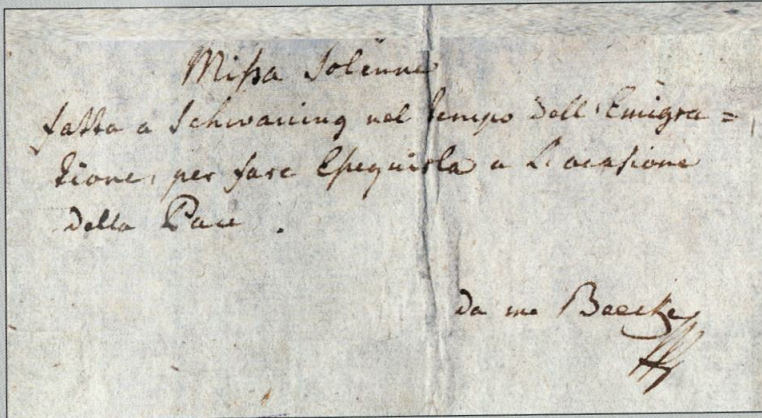 Missa Solenne
fatta a Schwaning nel tempo dell'Emigra=
zione, per fare Esequirla a L'ocasione
della Pace.
da me Baecke